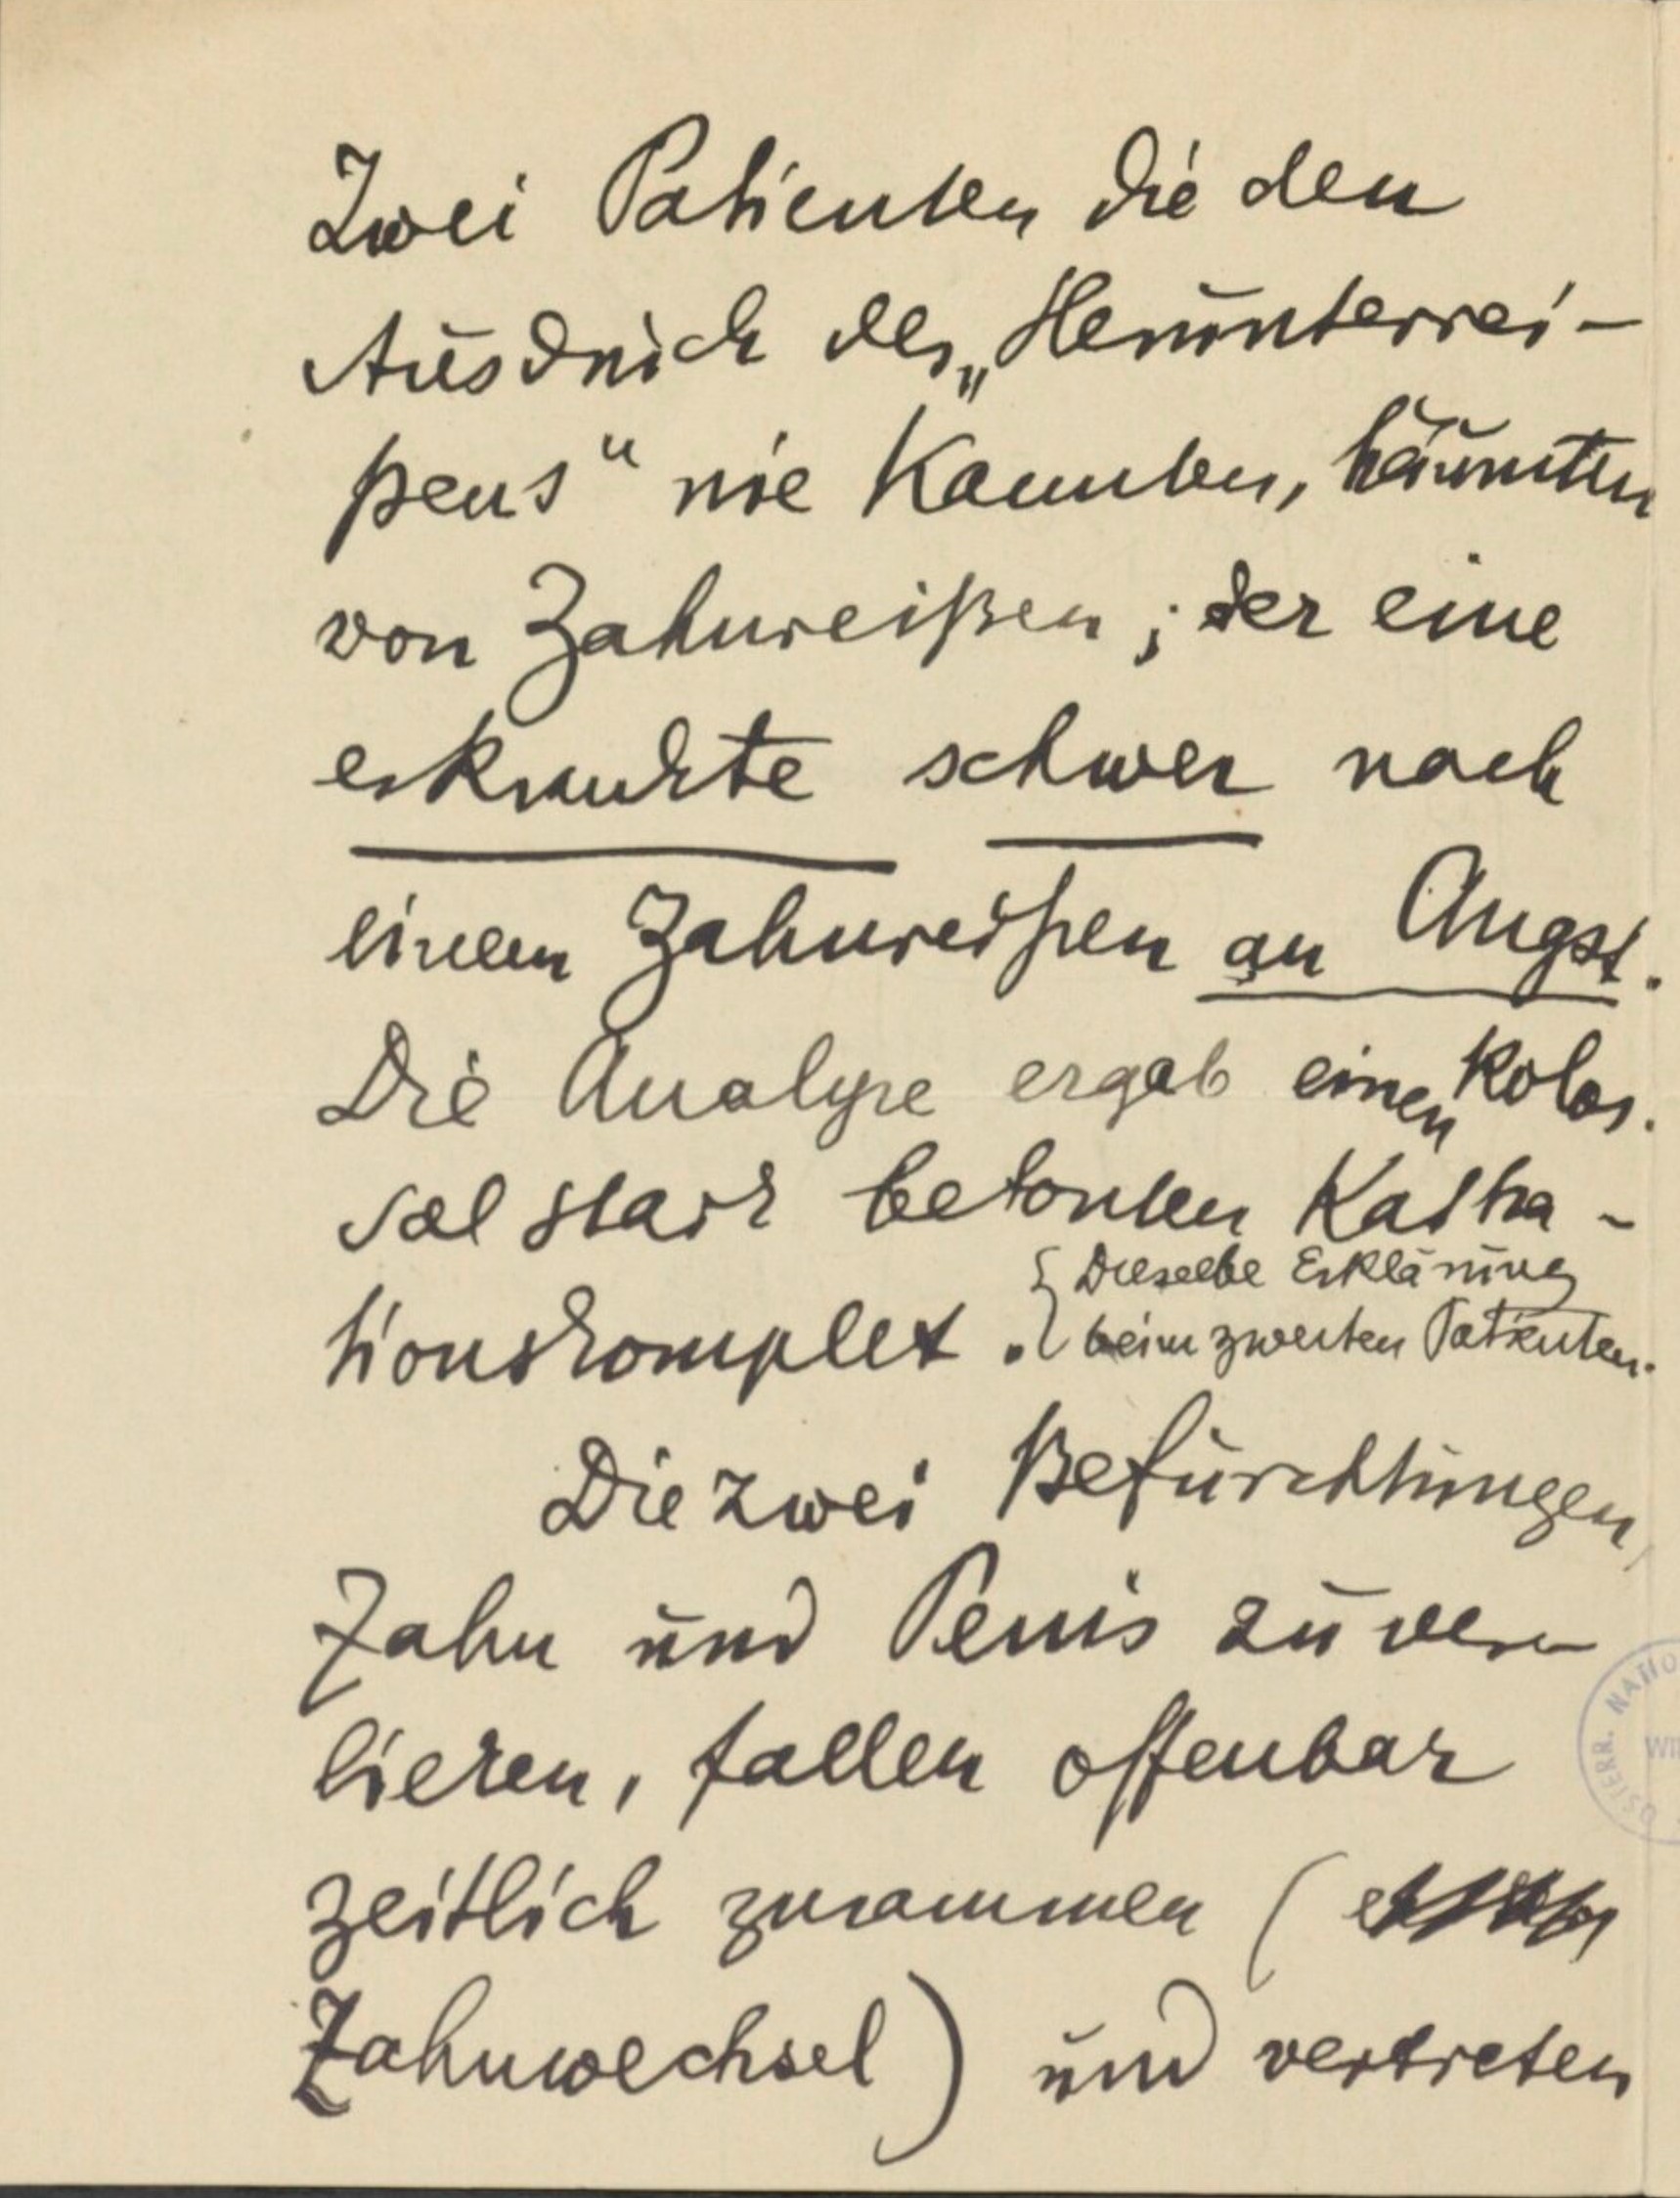 Zwei Patienten die den
Ausdruck des „Herunterrei-
ßens“ nie kannten, träumten
von Zahnreißen; der eine
erkrankte schwer nach
einem Zahnreißen an Angst.
Die Analyse ergab einen kolos-
sal stark betonten Kastra-
tionskomplex. { Dieselbe Erklärung
beim zweiten Patienten.
Die zwei Befürchtungen,
Zahn und Penis zu ver-
lieren, fallen offenbar
zeitlich zusammen (
Zahnwechsel) und vertreten
ÖSTERR. NATIO
WI